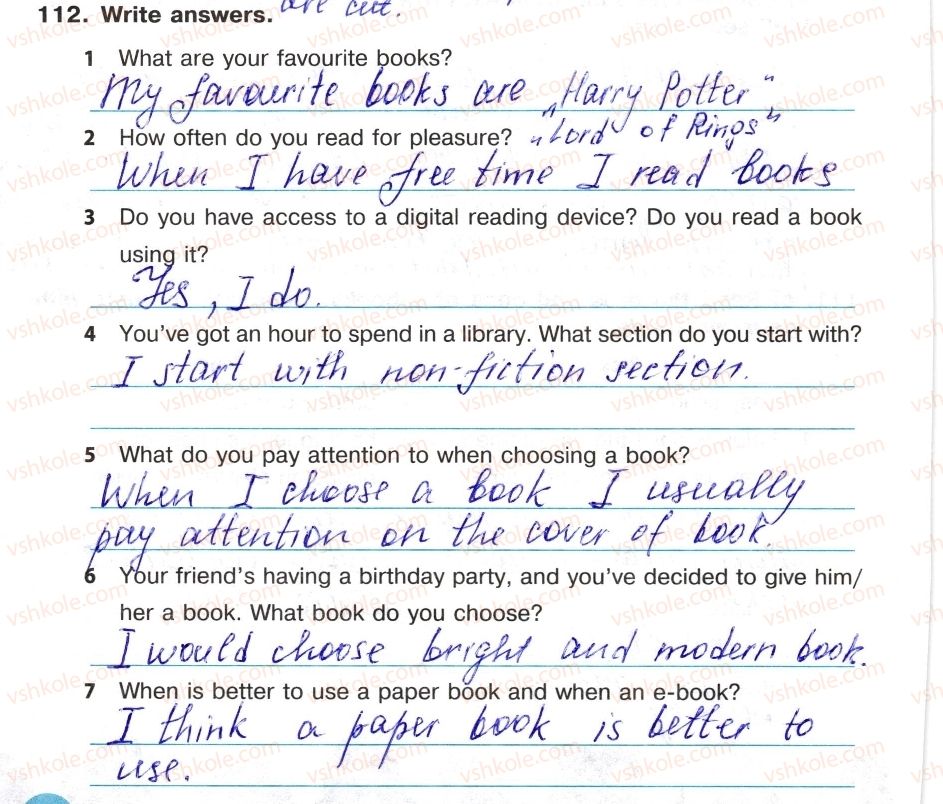 are cut.
112. Write answers.
1 What are your favourite books?
My favourite books are „Harry Potter"
2 How often do you read for pleasure? „Lord of Rings"
When I have free time I read books
3 Do you have access to a digital reading device? Do you read a book
using it?
Yes, I do.
4 You've got an hour to spend in a library. What section do you start with?
I start with non-fiction section.
5 What do you pay attention to when choosing a book?
When I choose a book I usually
pay attention on the cover of book.
6 Your friend's having a birthday party, and you've decided to give him/
her a book. What book do you choose?
I would choose bright and modern book.
7 When is better to use a paper book and when an e-book?
I think a paper book is better to
use.
vshkole.com